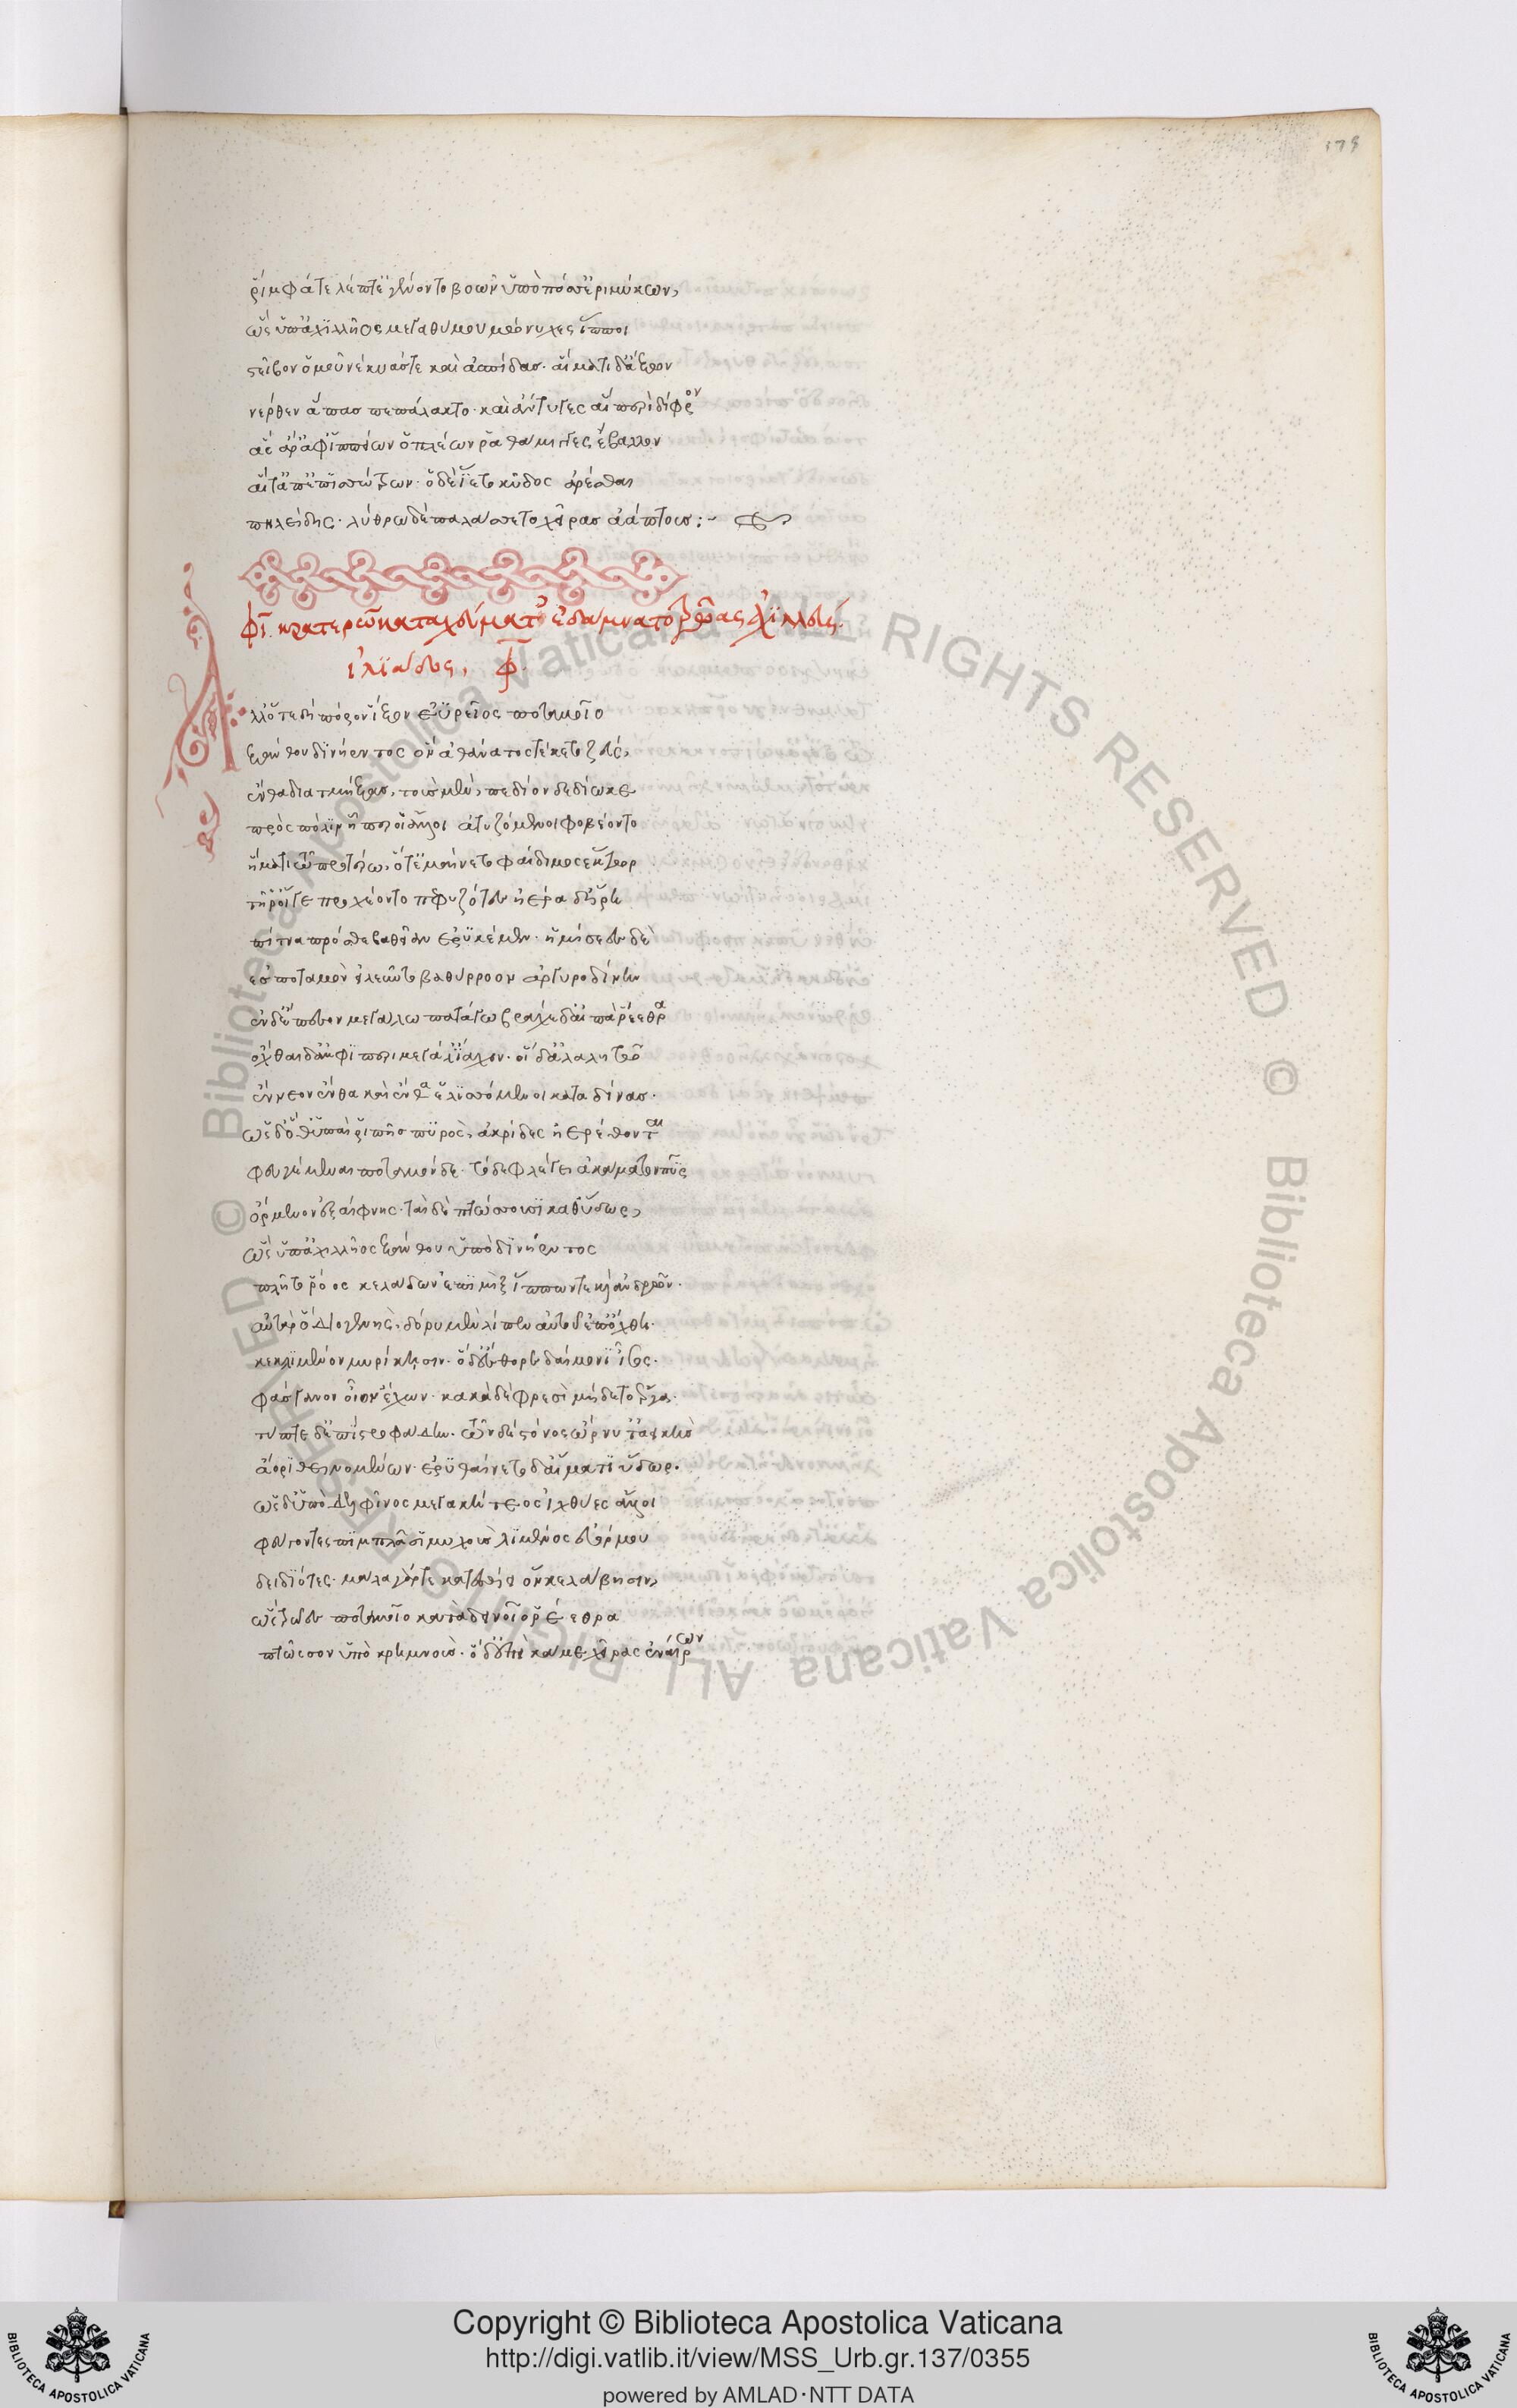 179
ῥίμφά τε λέπτ' ἐγένοντο βοῶν ὑπὸ πόσσ' ἐριμύκων,
ὣς ὑπ' ἀχιλλῆος μεγαθύμου μώνυχες ἵπποι
στεῖβον ὁμοῦ νέκυάς τε καὶ ἀσπίδας· αἵματι δ' ἄξων
νέρθεν ἅπας πεπάλακτο· καὶ ἄντυγες αἳ περὶ δίφρον
ἃς ἄρ' ἀφ' ἱππείων ὁπλέων ῥαθάμιγγες ἔβαλλον
αἵ τ' ἀπ' ἐπισσώτρων· ὁ δὲ ἵετο κῦδος ἀρέσθαι
πηλείδης· λύθρω δὲ παλάσσετο χεῖρας ἀάπτους:~
φῖ. κρατερῶ κατὰ χεύματ' ἐδάμνατο τρῶας ἀχιλλεύς.
ἰλιάδος, φ
λλ' ὅτε δὴ πόρον ἷξον ἐϋρεῖος ποταμοῖο
ξάνθου δινήεντος ὃν ἀθάνατος τέκετο ζεύς,
ἔνθα διατμήξας, τοὺς μὲν, πεδίον δ' ἐδίωκε
πρὸς πόλιν ᾗ περ οἱ ἄλλοι ἀτυζόμενοι φοβέοντο
ἤματι τῶ προτέρω, ὅτ' ἐμαίνετο φαίδιμος ἕκτωρ
τῆ ῥ' οἵ γε προχέοντο πεφυζότες ἠέρα δ' ἥρη
πίτνα πρόσθε βαθεῖαν ἐρυκέμεν· ἡμίσεες δὲ
ἐς ποταμὸν εἰλεῦντο βαθύρροον ἀργυροδίνην
ἐν δ' ἔπεσον μεγάλω πατάγω βράχε δ' αἰπὰ ῥέεθρα
ὄχθαι δ' ἀμφὶ περὶ μεγάλ' ἴαχον· οἱ δ' ἀλαλητῶ
ἔννεον ἔνθα καὶ ἔνθα ἑλισσόμενοι κατὰ δίνας·
ὡς δ' ὅθ' ὑπαὶ ῥιπῆς πυρὸς, ἀκρίδες ἠερέθονται
φευγέμεναι ποταμόνδε· τὸ δὲ φλέγει ἀκάματον πῦρ
ὄρμενον ἐξαίφνης· ταὶ δὲ πτώσσουσι καθ' ὕδωρ,
ὣς ὑπ' ἀχιλλῆος ξάνθου ὑποδινήεντος
πλῆτο ῥόος κελάδων ἐπιμὶξ ἵππων τε καὶ ἀνδρῶν.
αὐτὰρ ὁ διογενὴς, δόρυ μὲν λίπεν αὐτοῦ ἐπ' ὄχθη·
κεκλιμένον μυρίκησιν· ὁ δ' ἔσθορε δαίμονι ἶσος·
φάσγανον οἶον ἔχων· κακὰ δὲ φρεσὶ μήδετο ἔργα·
τύπτε δ' ἐπιστροφάδην· τῶν δὲ στόνος ὤρνυτ' ἀεικὴς
ἄορι θεινομένων· ἐρυθαίνετο δ' αἵματι ὕδωρ.
ὡς δ' ὑπὸ δελφῖνος μεγακήτεος ἰχθύες ἄλλοι
φεύγοντες πιμπλᾶσι μυχοὺς λιμένος εὐόρμου
δειδιότες· μάλα γάρ τε κατεσθίει ὅν κε λάβησιν,
ὣς τρῶες ποταμοῖο κατὰ δεινοῖο ῥέεθρα
πτῶσσον ὑπὸ κρημνούς· ὁ δ' ἐπεὶ κάμε χεῖρας ἐναίρων
© Biblioteca Apostolica Vaticana ALL RIGHTS RESERVED © Biblioteca Apostolica Vaticana ALL RIGHTS RESERVED
Copyright © Biblioteca Apostolica Vaticana
http://digi.vatlib.it/view/MSS_Urb.gr.137/0355
powered by AMLAD·NTT DATA
BIBLIOTECA APOSTOLICA VATICANA
BIBLIOTECA APOSTOLICA VATICANA